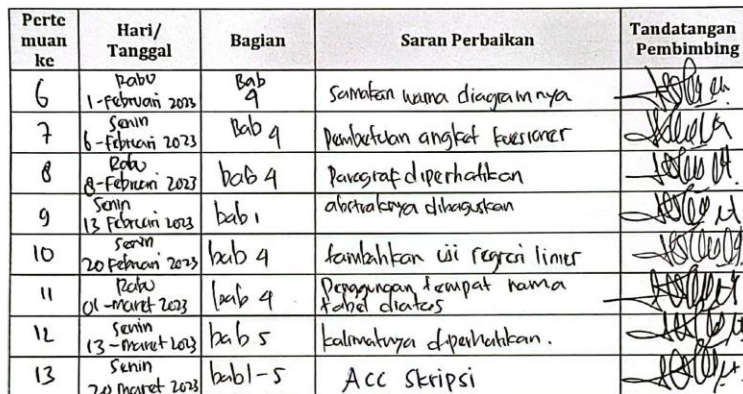 Perte muan ke Hari/ Tanggal Bagian Saran Perbaikan Tandatangan Pembimbing
6 Rabu 1-Februari 2023 Bab 4 Samakan warna diagramnya
7 Senin 6-Februari 2023 Bab 4 Pembetulan angket kuesioner
8 Rabu 8-Februari 2023 bab 4 Paragraf diperhatikan
9 Senin 13 Februari 2023 bab 1 abstraknya dibaguskan
10 Senin 20 Februari 2023 bab 4 tambahkan uji regresi linier
11 Rabu 01-Maret 2023 bab 4 tempat nama tabel diatas
12 Senin 13-Maret 2023 bab 5 kalimatnya diperhatikan.
13 Senin 20 Maret 2023 bab 1-5 Acc Skripsi